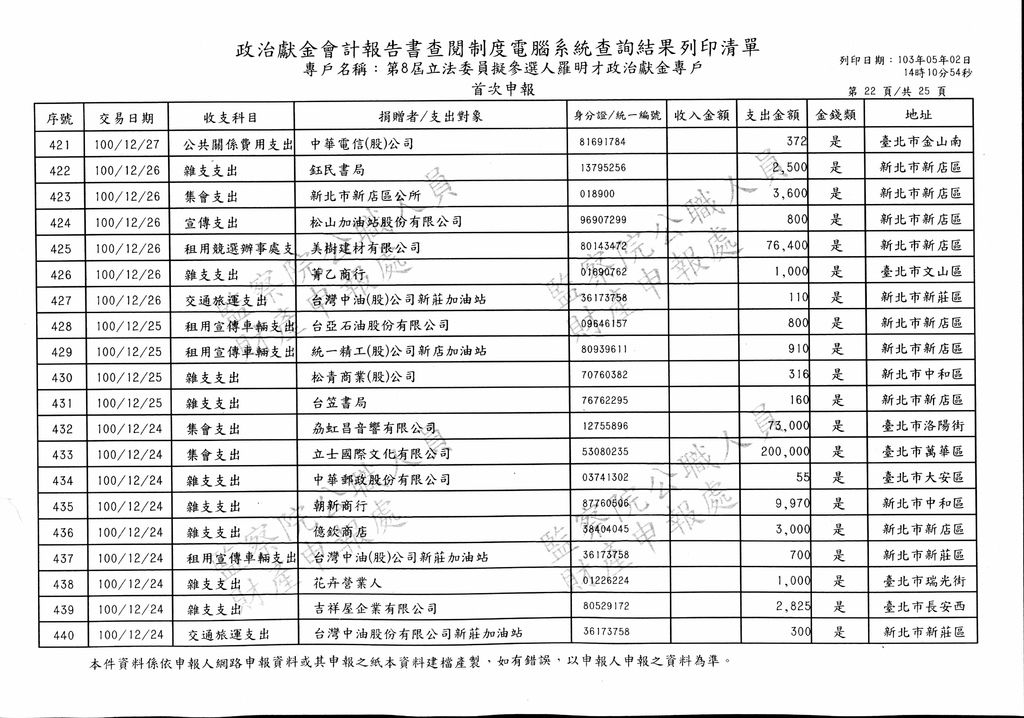 政治獻金會計報告書查閱制度電腦系統查詢結果列印清單
專戶名稱：第8屆立法委員擬參選人羅明才政治獻金專戶
首次申報
列印日期：103年05年02日
14時10分54秒
第 22 頁/共 25 頁
序號 交易日期 收支科目 捐贈者/支出對象 身分證/統一編號 收入金額 支出金額 金錢類 地址
421 100/12/27 公共關係費用支出 中華電信(股)公司 81691784 372 是 臺北市金山南
422 100/12/26 雜支支出 鈺民書局 13795256 2,500 是 新北市新店區
423 100/12/26 集會支出 新北市新店區公所 018900 3,600 是 新北市新店區
424 100/12/26 宣傳支出 松山加油站股份有限公司 96907299 800 是 新北市新店區
425 100/12/26 租用競選辦事處支 美樹建材有限公司 80143472 76,400 是 新北市新店區
426 100/12/26 雜支支出 菁乙商行 01690762 1,000 是 臺北市文山區
427 100/12/26 交通旅運支出 台灣中油(股)公司新莊加油站 36173758 110 是 新北市新莊區
428 100/12/25 租用宣傳車輛支出 台亞石油股份有限公司 09646157 800 是 新北市新店區
429 100/12/25 租用宣傳車輛支出 統一精工(股)公司新店加油站 80939611 910 是 新北市新店區
430 100/12/25 雜支支出 松青商業(股)公司 70760382 316 是 新北市中和區
431 100/12/25 雜支支出 台笠書局 76762295 160 是 新北市新店區
432 100/12/24 集會支出 荔虹昌音響有限公司 12755896 73,000 是 臺北市洛陽街
433 100/12/24 集會支出 立士國際文化有限公司 53080235 200,000 是 臺北市萬華區
434 100/12/24 雜支支出 中華郵政股份有限公司 03741302 55 是 臺北市大安區
435 100/12/24 雜支支出 朝新商行 87760506 9,970 是 新北市中和區
436 100/12/24 雜支支出 億欽商店 38404045 3,000 是 新北市新店區
437 100/12/24 租用宣傳車輛支出 台灣中油(股)公司新莊加油站 36173758 700 是 新北市新莊區
438 100/12/24 雜支支出 花卉營業人 01226224 1,000 是 臺北市瑞光街
439 100/12/24 雜支支出 吉祥屋企業有限公司 80529172 2,825 是 臺北市長安西
440 100/12/24 交通旅運支出 台灣中油股份有限公司新莊加油站 36173758 300 是 新北市新莊區
本件資料係依申報人網路申報資料或其申報之紙本資料建檔產製，如有錯誤，以申報人申報之資料為準。
監察院公職人員
財產申報處
監察院公職人員
財產申報處
監察院公職人員
財產申報處
監察院公職人員
財產申報處